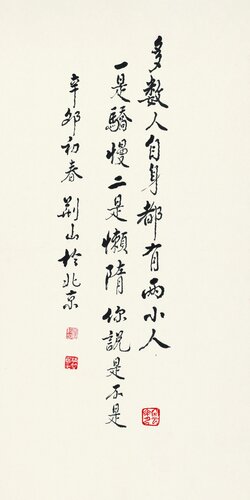 多数人自身都有两小人
一是驕慢二是懒隋你説是不是
辛卯初春荆山於北京